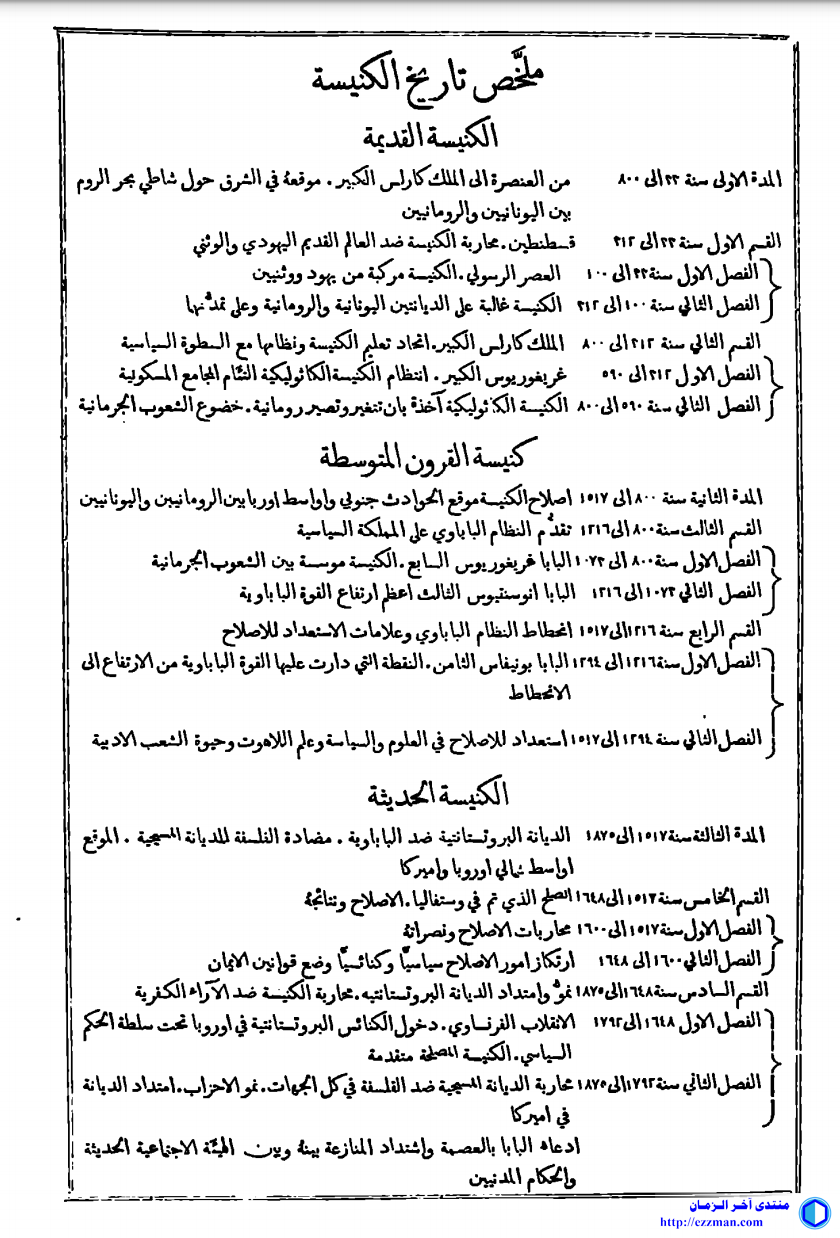 ملخَّص تاريخ الكنيسة
الكنيسة القديمة
المدة الاولى سنة ٣٣ الى ٨٠٠ من العنصرة الى الملك كارلس الكبير . موقعهُ في الشرق حول شاطي بحر الروم
بين اليونانيين والرومانيين
القسم الاول سنة ٣٣ الى ٣١٢ قسطنطين . محاربة الكنيسة ضد العالم القديم اليهودي والوثني
الفصل الاول سنة ٣٣ الى ١٠٠ العصر الرسولي . الكنيسة مركبة من يهود ووثنيين
الفصل الثاني سنة ١٠٠ الى ٣١٢ الكنيسة غالبة على الديانتين اليونانية والرومانية وعلى تمدُّنها
القسم الثاني سنة ٣١٢ الى ٨٠٠ الملك كارلس الكبير . اتحاد تعليم الكنيسة ونظامها مع السطوة السياسية
الفصل الاول ٣١٢ الى ٥٩٠ غريغوريوس الكبير . انتظام الكنيسة الكاثوليكية التئام المجامع المسكونية
الفصل الثاني سنة ٥٩٠ الى ٨٠٠ الكنيسة الكاثوليكية آخذة بان تتغير وتصير رومانية . خضوع الشعوب الجرمانية
كنيسة القرون المتوسطة
المدة الثانية سنة ٨٠٠ الى ١٥١٧ اصلاح الكنيسة موقع الحوادث جنوبي واواسط اوربا بين الرومانيين واليونانيين
القسم الثالث سنة ٨٠٠ الى ١٢١٦ تقدُّم النظام الباباوي على المملكة السياسية
الفصل الاول سنة ٨٠٠ الى ١٠٧٣ البابا غريغوريوس السابع . الكنيسة موسسة بين الشعوب الجرمانية
الفصل الثاني ١٠٧٣ الى ١٢١٦ البابا انوسنتيوس الثالث اعظم ارتفاع القوة الباباوية
القسم الرابع سنة ١٢١٦ الى ١٥١٧ انحطاط النظام الباباوي وعلامات الاستعداد للاصلاح
الفصل الاول سنة ١٢١٦ الى ١٢٩٤ البابا بونيفاس الثامن . النقطة التي دارت عليها القوة الباباوية من الارتفاع الى
الانحطاط
الفصل الثاني سنة ١٢٩٤ الى ١٥١٧ استعداد للاصلاح في العلوم والسياسة وعلم اللاهوت وحيوة الشعب الادبية
الكنيسة الحديثة
المدة الثالثة سنة ١٥١٧ الى ١٨٧٥ الديانة البروتستانتية ضد الباباوية . مضادة الفلسفة للديانة المسيحية . الموقع
اواسط شمالي اوروبا واميركا
القسم الخامس سنة ١٥١٧ الى ١٦٤٨ الصلح الذي تم في وستفاليا . الاصلاح ونتائجهُ
الفصل الاول سنة ١٥١٧ الى ١٦٠٠ محاربات الاصلاح ونصراتهُ
الفصل الثاني ١٦٠٠ الى ١٦٤٨ ارتكاز امور الاصلاح سياسيًّا وكنائسيًّا وضع قوانين الايمان
القسم السادس سنة ١٦٤٨ الى ١٨٧٥ نموُّ وامتداد الديانة البروتستانتيه . محاربة الكنيسة ضد الآراء الكفرية
الفصل الاول ١٦٤٨ الى ١٧٩٢ الانقلاب الفرنساوي . دخول الكنائس البروتستانتية في اوروبا تحت سلطة الحكم
السياسي . الكنيسة المصلحة متقدمة
الفصل الثاني سنة ١٧٩٢ الى ١٨٧٥ محاربة الديانة المسيحية ضد الفلسفة في كل الجهات . نمو الاحزاب . امتداد الديانة
في اميركا
ادعاء البابا بالعصمة واشتداد المنازعة بينهُ وبين الهيئة الاجتماعية الحديثة
والحكام المدنيين
منتدى آخر الزمان
http://ezzman.com